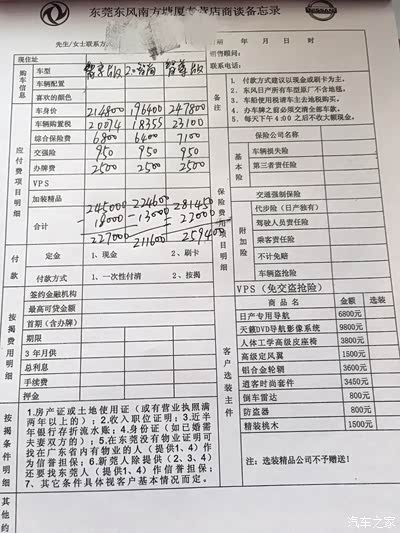 东莞东风南方塘厦专营店商谈备忘录
NISSAN
先生/女士联系方
年 月 日
现住址
明售顾问：
联系电话：
购车信息
车型
车辆配置
喜欢的颜色
备注
1．付款方式建议以现金或刷卡为主。
2．东风日产所有车型原厂不含地毯。
3．车船使用税请车主去地税购买。
4．办车牌之前必须交清全部车款。
5．每天下午4:00之后不收大额现金。
应付费项目明细
车身价 214800 196400 247800
车辆购置税 20074 18355 23100
综合保险费 6800 6400 7100
交强险 950 950 950
办牌费 2500 2500 2500
VPS
加装精品
合计
245000 224600 281450
-18000 -13000 -22000
227000 211600 259400
保险费用项目明细
保险公司名称
基本险
车辆损失险
第三者责任险
交通强制保险
附加险
代步险（日产独有）
驾驶人员责任险
乘客责任险
不计免赔
车辆盗抢险
VPS（免交盗抢险）
付款
定金 1、现金 2、刷卡
付款方式 1、一次性付清 2、按揭
按揭费用明细
签约金融机构
最高可贷金额
首期（含办牌）
期限
3年月供
总利息
手续费
押金
客户选装主件
商品名 金额 选装
日产专用导航 6800元
天籁DVD导航影像系统 9800元
人体工学高级皮座椅 3800元
高级定风翼 1500元
铝合金轮钢 3600元
逍客时尚套件 3450元
倒车雷达 800元
防盗器 800元
精装桃木 1500元
注：选装精品公司不予赠送！
按揭条件明细
1.房产证或土地使用证（或有营业执照满
两年以上的）；2.收入职位证明；3.近半
年银行存折流水账；4.身份证（如已婚需
夫妻双方的）；5.在东莞没有物业证明可
找在广东省内有物业的人（提供1、4）作
为信誉担保；6.新莞人除提供（2、3、4）
还要找东莞人（提供1、4）作信誉担保；
7、其它条件具体视客户基本情况而定。
其他约
汽车之家